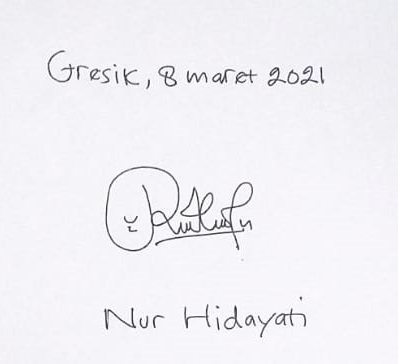 Gresik, 8 maret 2021
Nur Hidayati